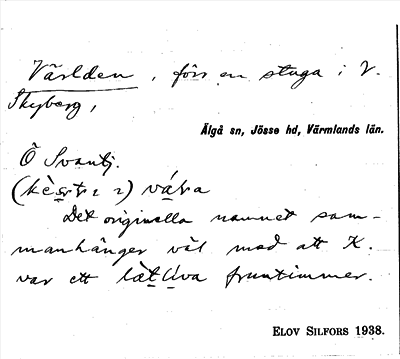 Världen, förr en stuga i V.
Skyberg,
Älgå sn, Jösse hd, Värmlands län.
Ö Svantj.
vára
Det originella namnet sam-
manhänger väl med att K.
var ett lätlíva fruntimmer.
ELOV SILFORS 1938.